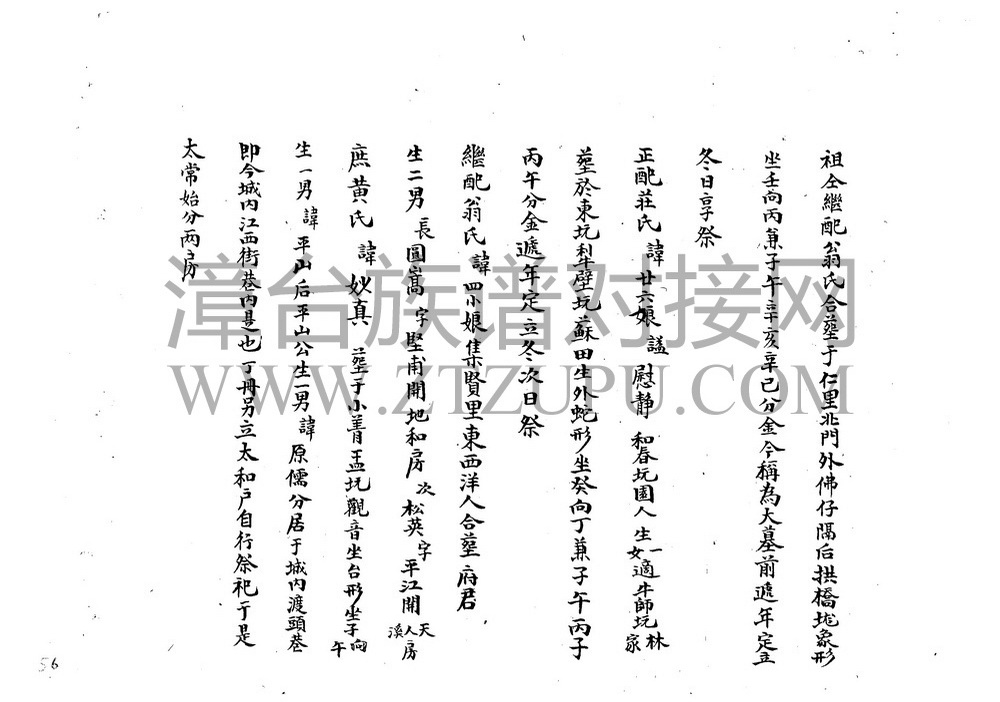 祖仝繼配翁氏合塟于仁里北門外佛仔隔后拱橋垅象形
坐壬向丙兼子午辛亥辛巳分金今稱為大墓前遞年定立
冬日享祭
正配莊氏諱廿六娘謚慰静和春坑園人生一女適牛師坑林家
塟於東坑犁壁坑蘇田生外蛇形坐癸向丁兼子午丙子
丙午分金遞年定立冬次日祭
繼配翁氏諱四小娘集賢里東西洋人合塟府君
生二男長圓嵩字堅甫開地和房次松英字平江開天人房溪
庶黄氏諱妙真塟于小菁孟坑觀音坐台形坐子向午
生一男諱平山后平山公生一男諱原儒分居于城内渡頭巷
即今城内江西街巷内是也丁冊另立太和户自行祭祀于是
太常始分兩房
漳台族谱对接网
WWW.ZTZUPU.COM
56